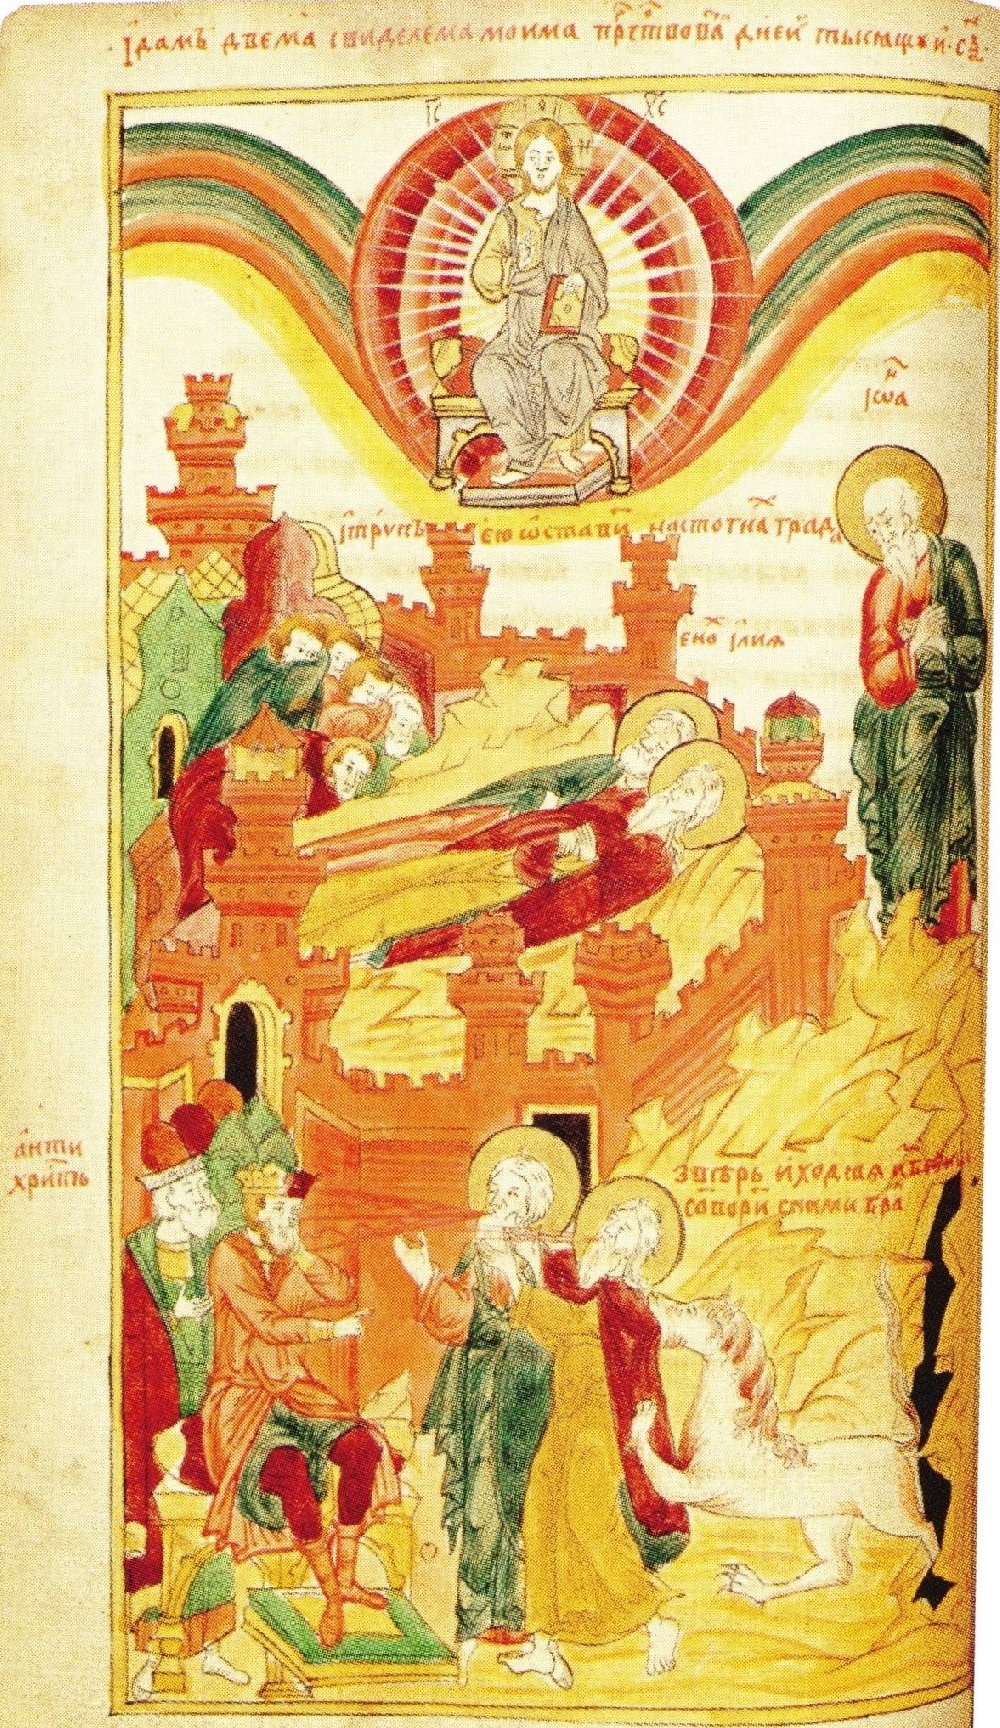 І дамъ двѣма свидѣлема моима прⷪ҇ртвова дней тысящꙋ и с҃ѯ
І҃С Х҃С
Іѡⷩ҇а
і трупъ ею ѡставиⷲ҇ на стогнаⷯ града
Еноⷯ Ілия
анти
христъ
звѣрь исходяй иⷥ беⷥны
соⷮвори с ними браⷩ